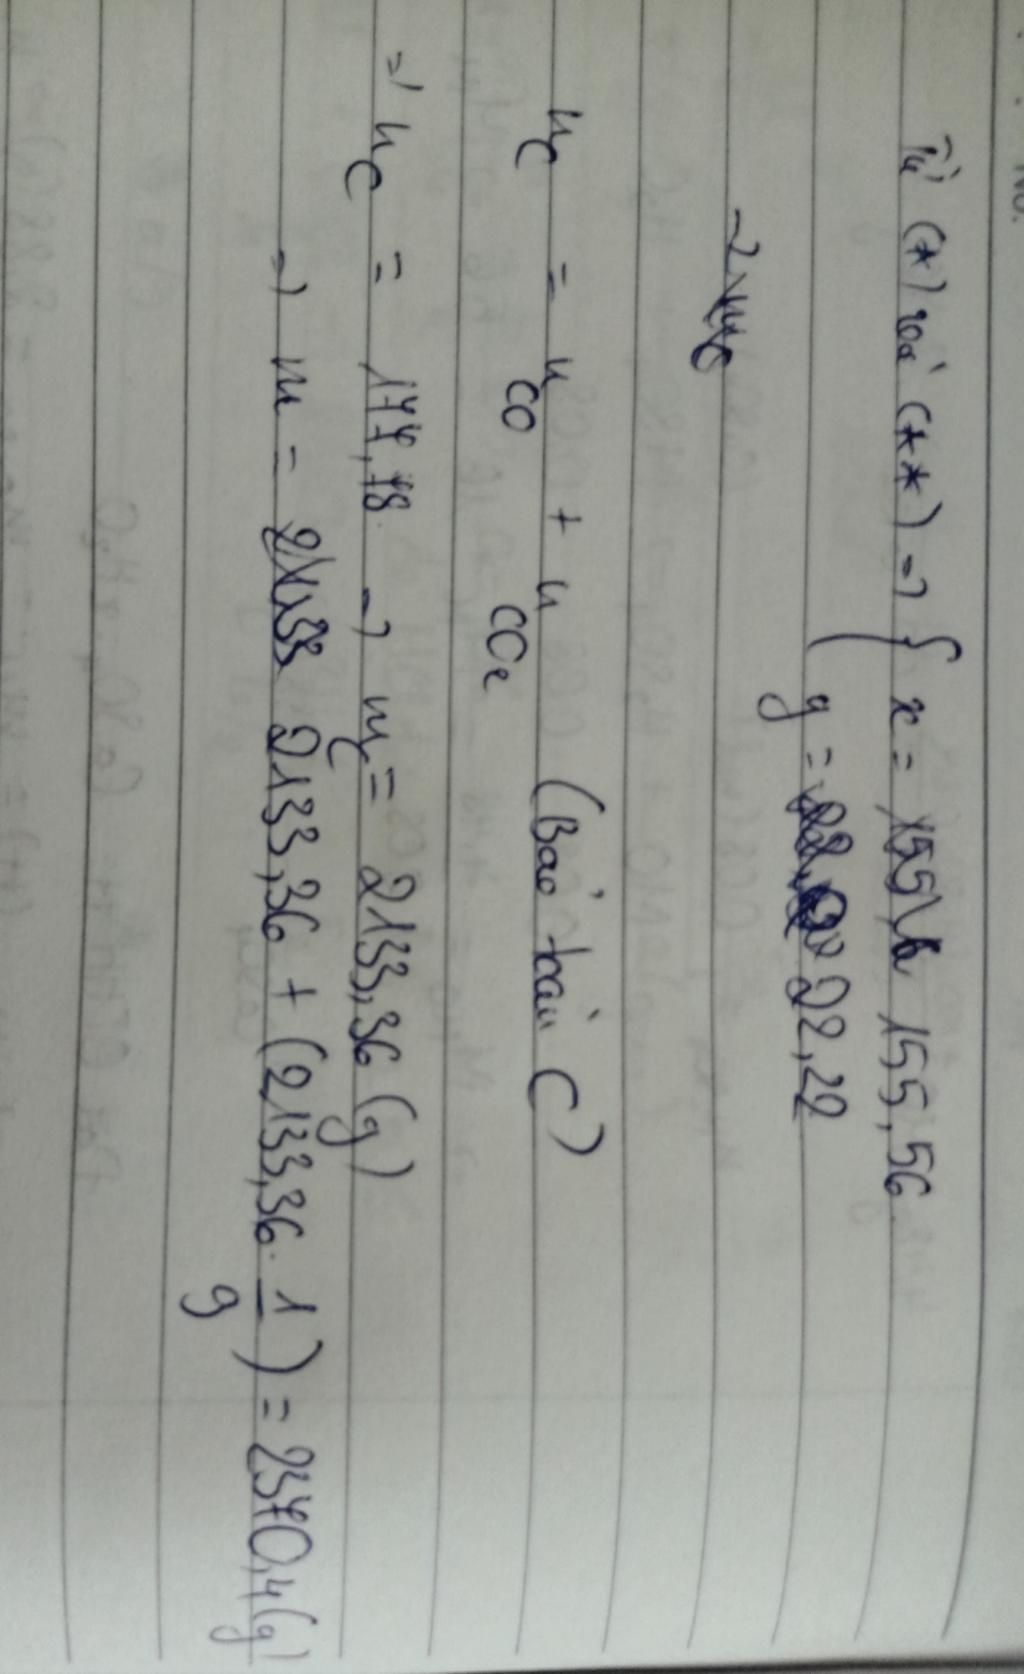 No.
Từ (*) và (**) => { x = 155,56
y = 22,22
nC = nCO + nCO2 (Bảo toàn C)
=> nC = 177,78 -> mC = 2133,36 (g)
-> m = 2133,36 + (2133,36 . 1/9) = 2370,4 (g)